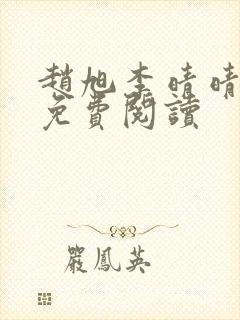 趙旭李晴晴
免費閱讀
嚴鳳英